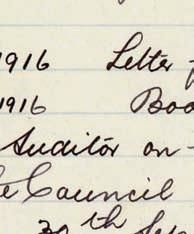 1916 Letter
1916 Boo
Auditor on-
Council
30th Se